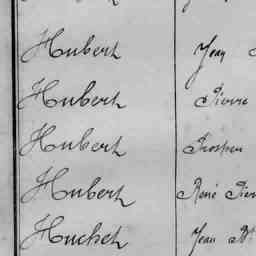 Hubert Jean
Hubert Pierre
Hubert Prosper
Hubert René Pier
Huchet Jean Bt